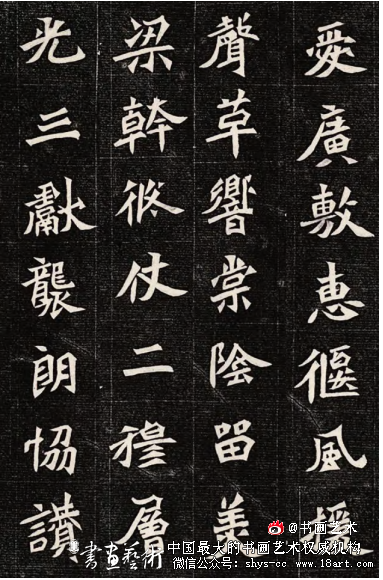 愛廣敷惠偃風援
聲草響棠陰留美
梁幹仗二穆層
光三獻襲朗協讚
@书画艺术
書画藝術 中国最大的书画艺术权威机构
微信公众号：shys-cc www.18art.com